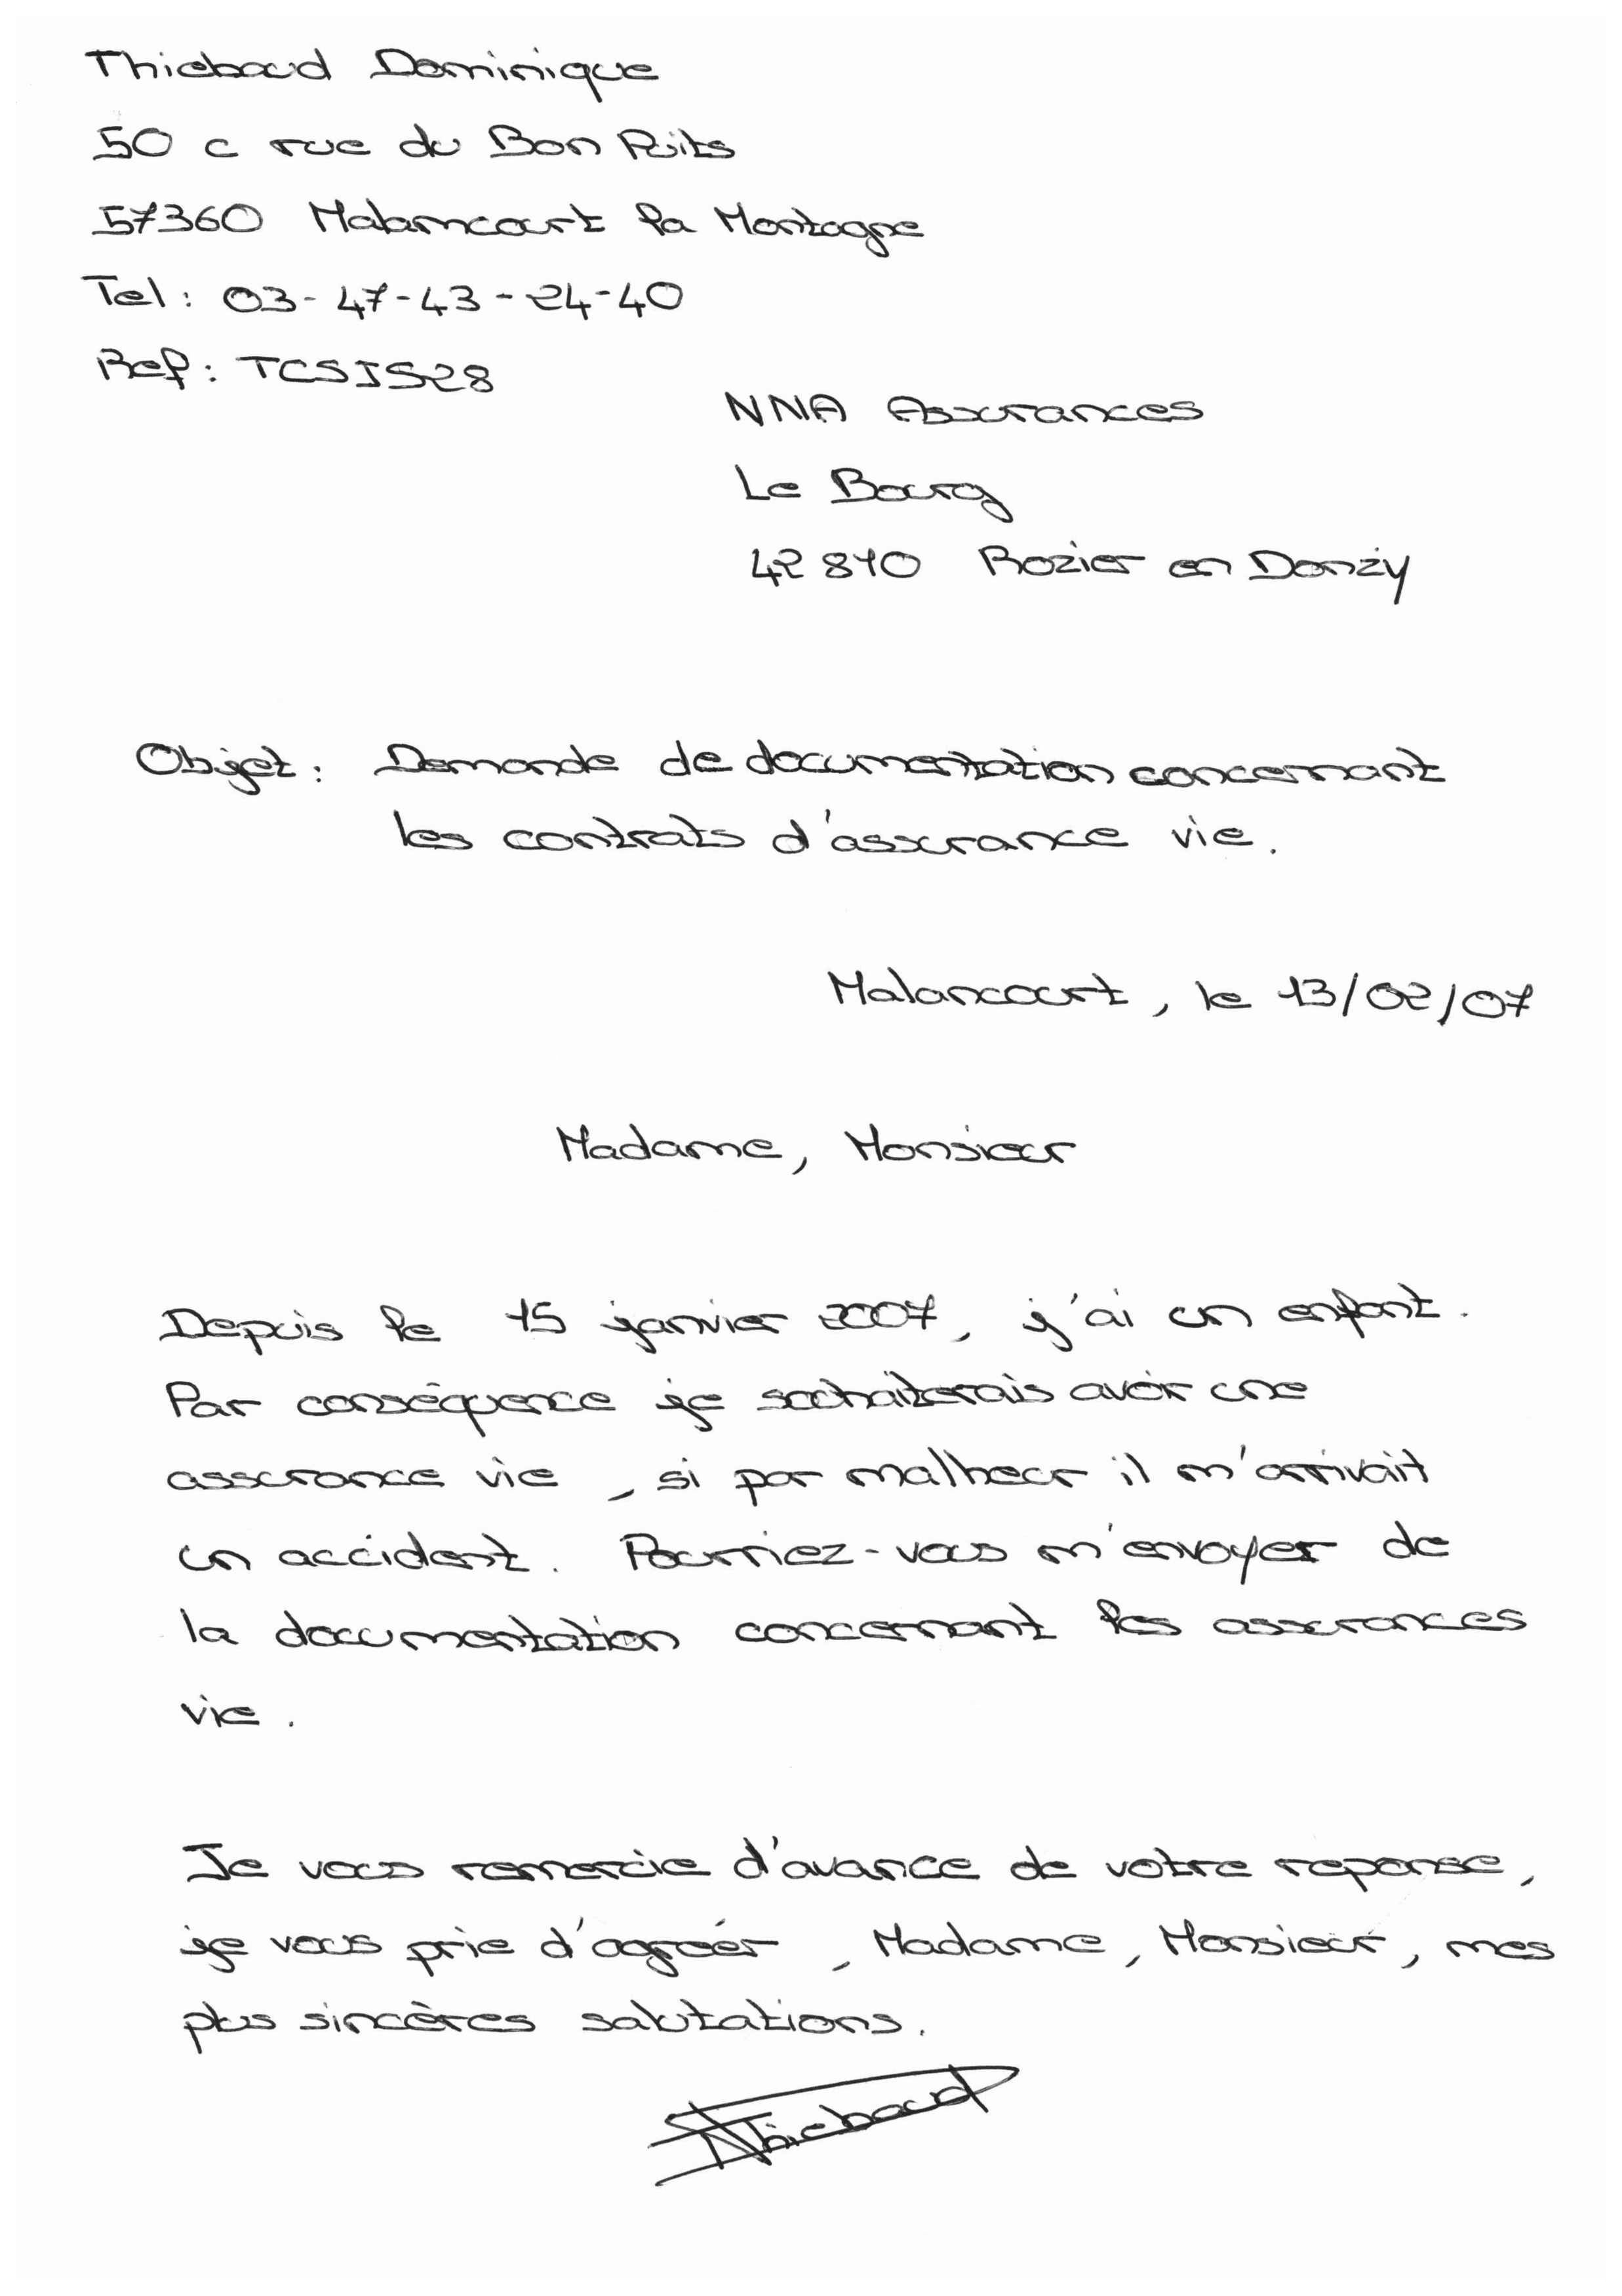 Thiebaud Dominique
50 c rue du Bon Puits
57360 Malamcourt la Montagne
Tel : 03-47-43-24-40
Ref : TCSIS28
NNA Assurances
Le Bourg
42810 Rozier en Donzy
Objet : Demande de documentation concernant
les contrats d'assurance vie.
Malancourt, le 13/02/07
Madame, Monsieur
Depuis le 15 janvier 2007, j'ai un enfant.
Par conséquence je souhaiterais avoir une
assurance vie, si par malheur il m'arrivait
un accident. Pourriez-vous m'envoyer de
la documentation concernant les assurances
vie.
Je vous remercie d'avance de votre reponse,
je vous prie d'agréer, Madame, Monsieur, mes
plus sincères salutations.
Thiebaud